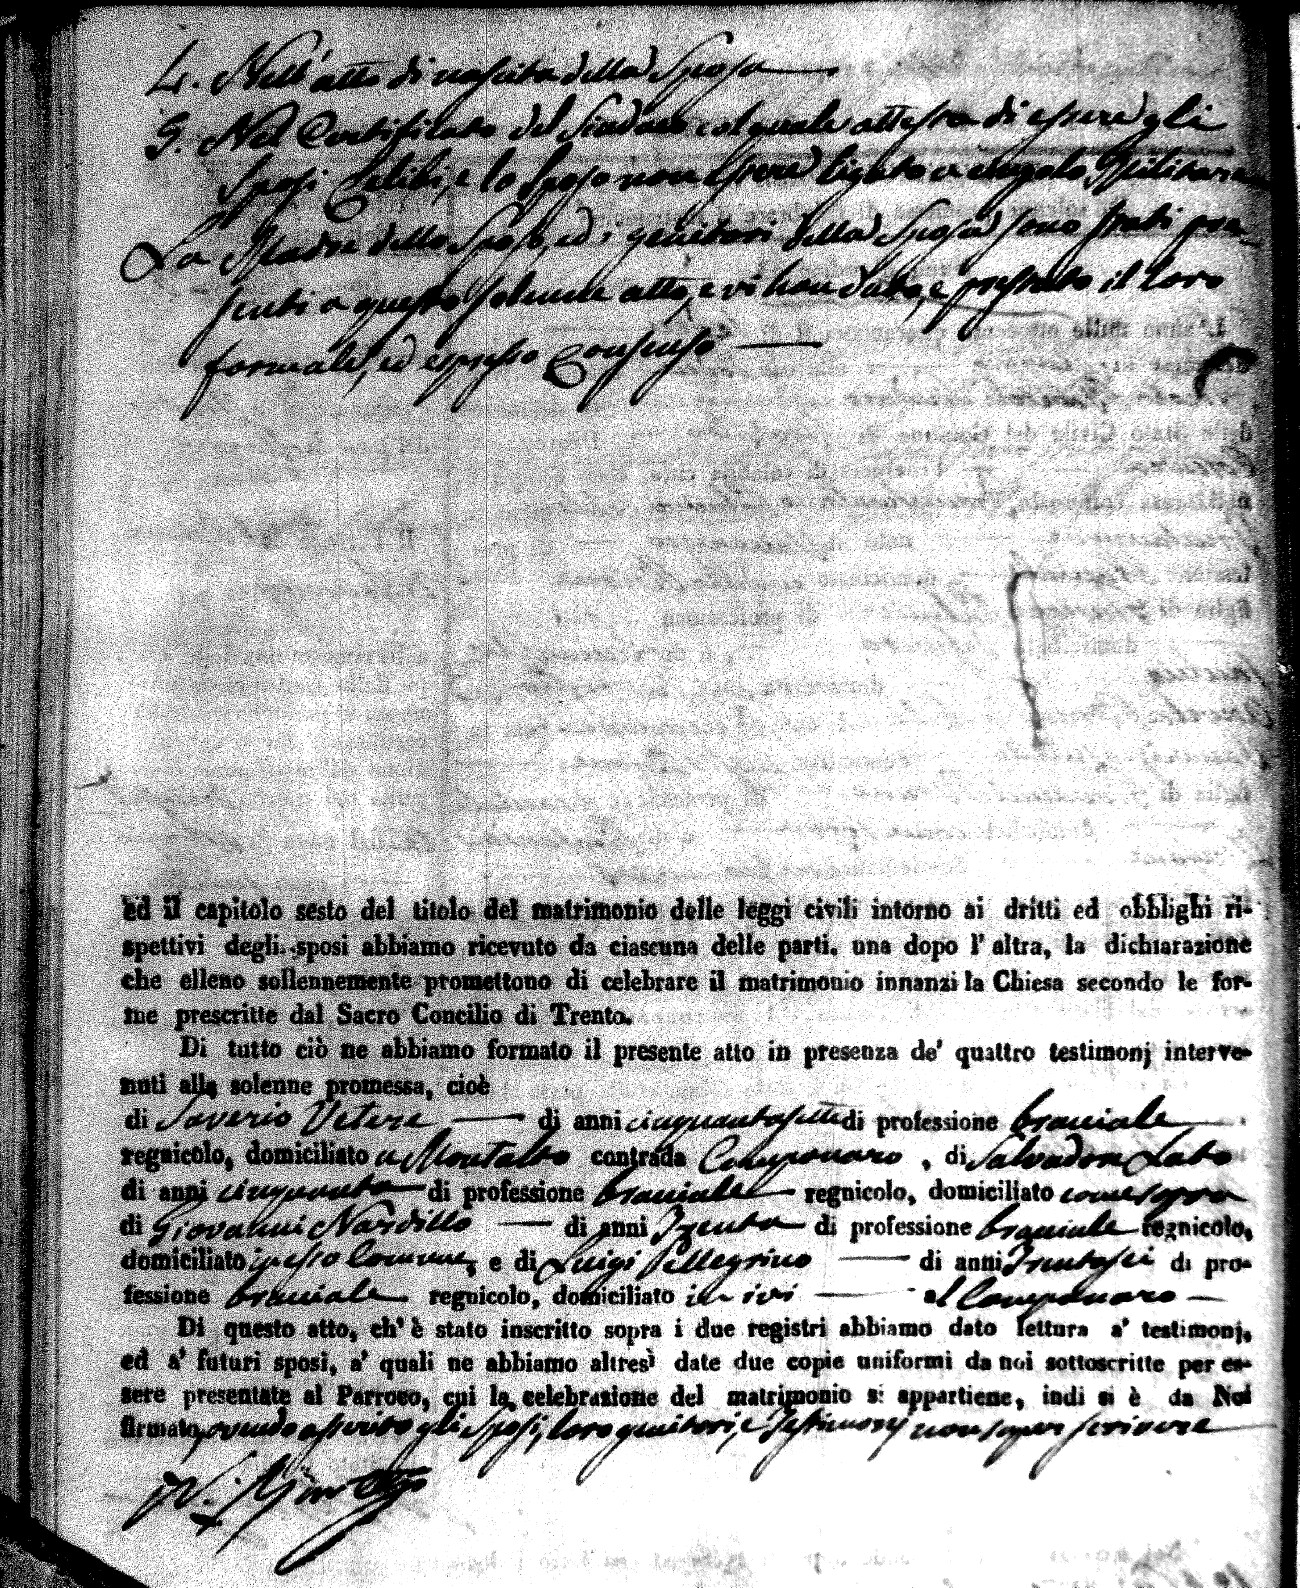 4. Nell'atto di nascita della Sposa
5. Nel Certificato del Sindaco col quale attesta di essere gli
Sposi Celibi, e lo Sposo non essere ligato a vincolo Militare
La Madre dello Sposo, ed i genitori della Sposa sono stati pre-
senti a questo solenne atto, e vi han dato, e prestato il loro
formale, ed espresso Consenso
ed il capitolo sesto del titolo del matrimonio delle leggi civili intorno ai dritti ed obblighi ri-
spettivi degli sposi abbiamo ricevuto da ciascuna delle parti, una dopo l' altra, la dichiarazione
che elleno sollennemente promettono di celebrare il matrimonio innanzi la Chiesa secondo le for-
me prescritte dal Sacro Concilio di Trento.
Di tutto ciò ne abbiamo formato il presente atto in presenza de' quattro testimonj interve-
nuti alla solenne promessa, cioè
di Saverio Vetere di anni cinquantasette di professione bracciale
regnicolo, domiciliato a Montalto contrada , di Salvadore Lato
di anni cinquanta di professione bracciale regnicolo, domiciliato come sopra
di Giovanni Nardillo di anni Trenta di professione bracciale regnicolo,
domiciliato in esso Comune, e di Luigi Pellegrino di anni Trentasei di pro-
fessione bracciale regnicolo, domiciliato in ivi al
Di questo atto, ch' è stato inscritto sopra i due registri abbiamo dato lettura a' testimonj,
ed a' futuri sposi, a' quali ne abbiamo altresì date due copie uniformi da noi sottoscritte per es-
sere presentate al Parroco, cui la celebrazione del matrimonio si appartiene, indi si è da Noi
firmato, avendo asserito gli Sposi, loro genitori, e Testimonj non saper scrivere